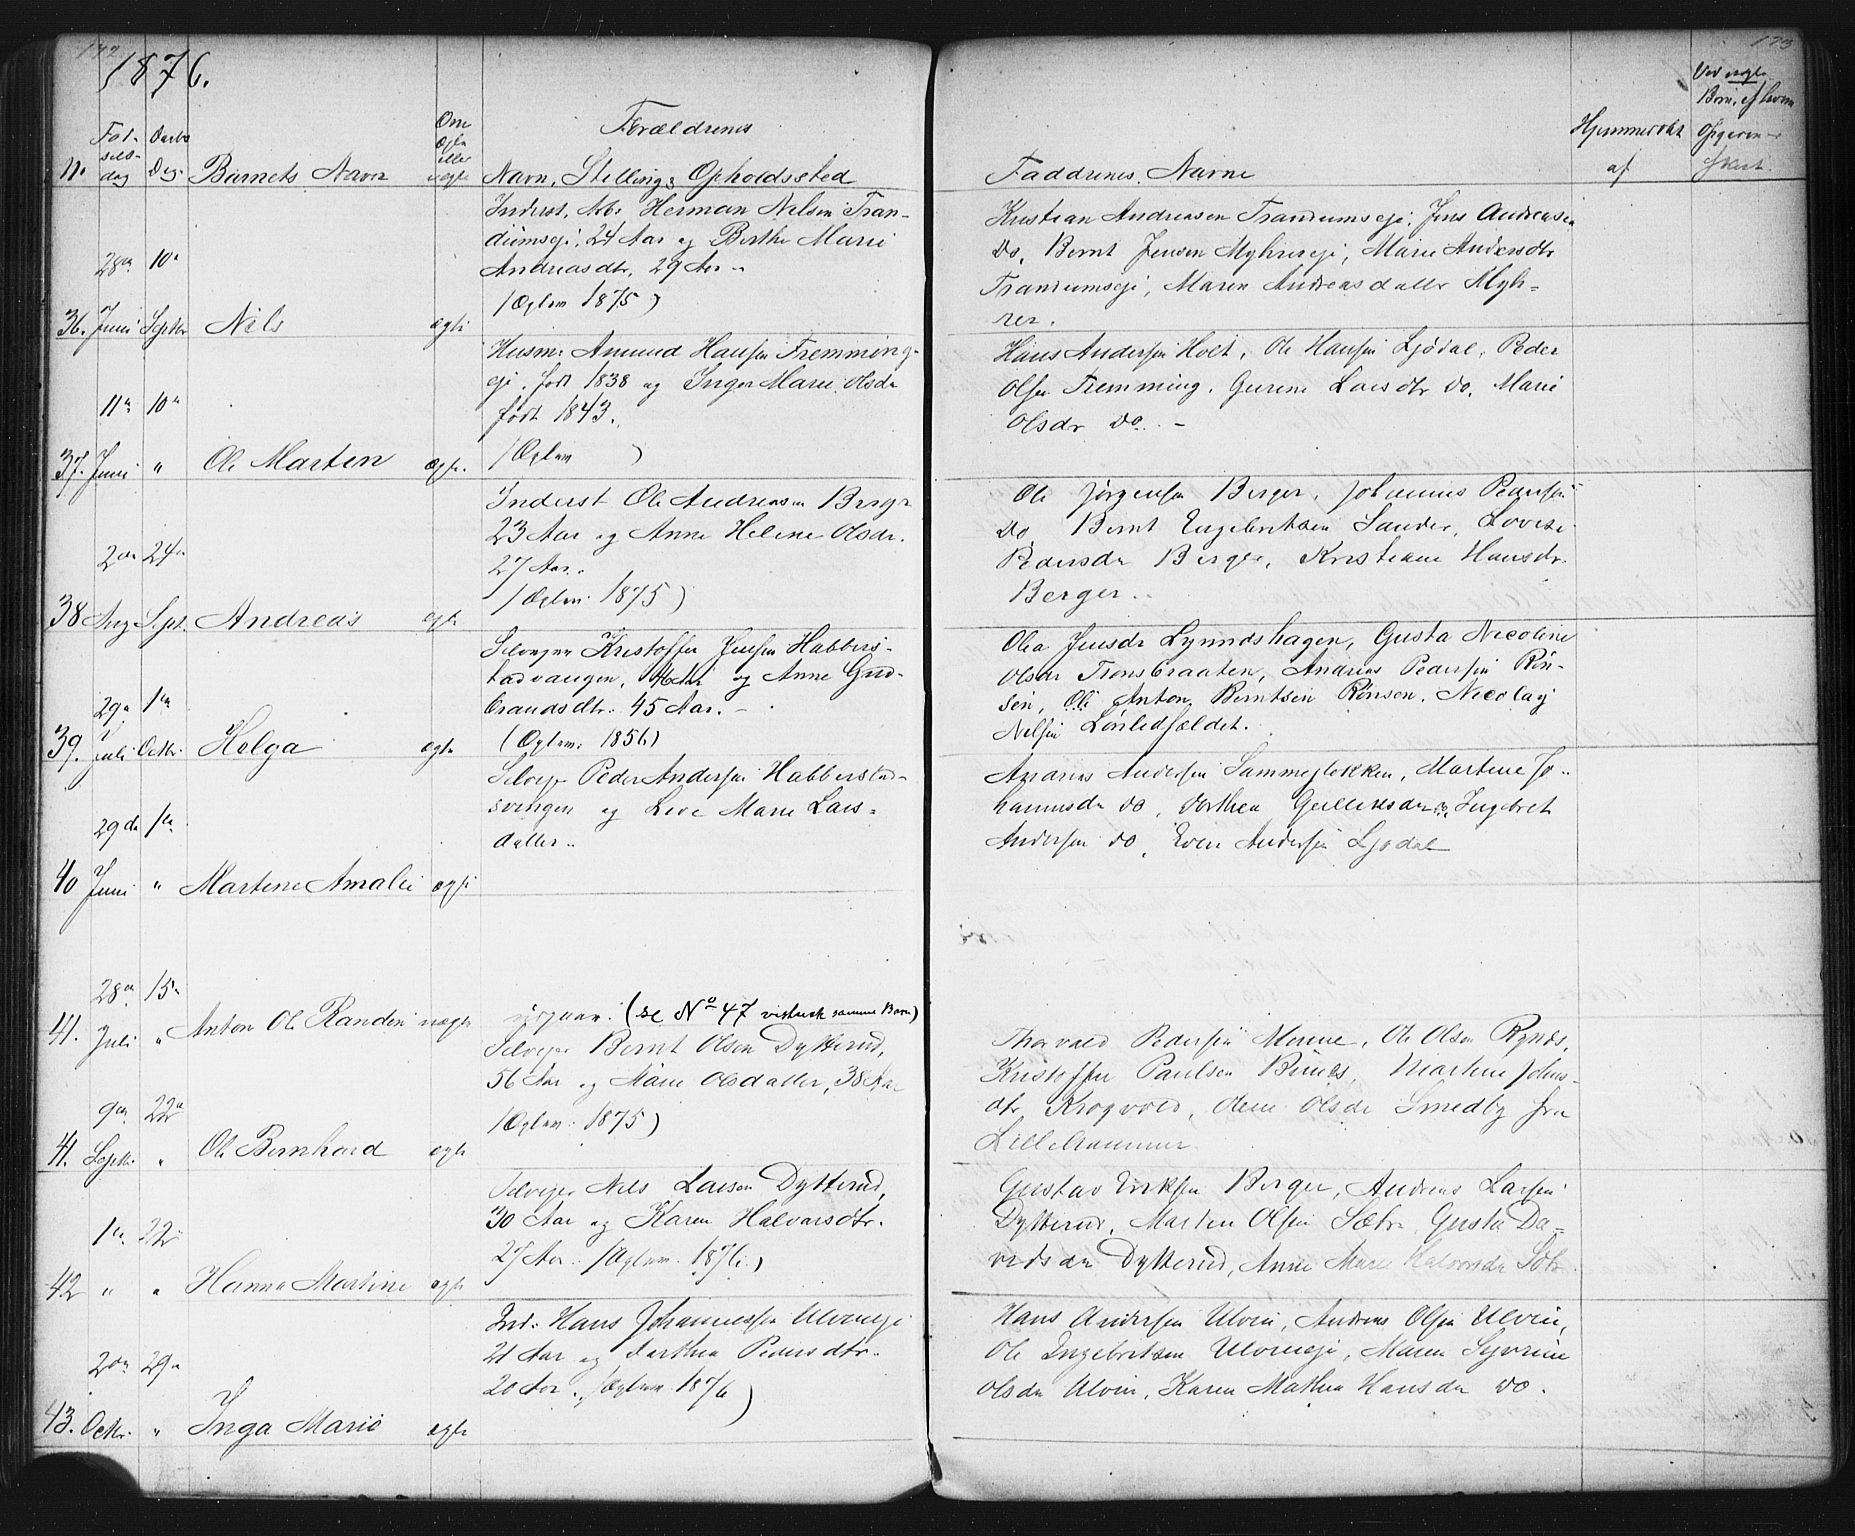 172
1876.
173
Ved uægte
Børn, af hvem
Opgiven er
skeet.
Hjemmerøbt
af
N.
Fød-
sels-
dag
Daabs
Dag
Barnets Navn
Om
Ægte
eller
uægte
Forældrenes
Navn, Stilling & Opholdssted
Faddrenes Navne
36.
28de
Juni
10de
Septbr
Nils
ægte
Inderst, Arb. Herman Nilsen Tran-
dumseje, 24 Aar og Berthe Marie
Andreasdtr, 29 Aar -
(Ægtev 1875)
Kristian Andreasen Trandumseje, Jens Andreasen
Do, Bernt Jensen Myhrereje, Marie Andersdtr
Trandumseje, Maren Andreasdatter Myh-
rer.
37.
11te
Juni
10de
"
Ole Martin
Ægte.
Husm: Amund Hansen Fremming-
eje, født 1838 og Inger Marie Olsdr
født 1843.
(Ægtev )
Hans Andersen Holt, Ole Hansen Ljødal, Peder
Olsen Fremming, Gurine Larsdtr Do, Marie
Olsdr Do. -
38
2den
Aug
24de
Spt.
Andreas
ægte
Inderst Ole Andreasen Berger
23 Aar og Anne Helene Olsdr.
27 Aar.
(Ægtev. 1875)
Ole Jørgensen Berger, Johannes Pedersen
Do, Bernt Engebretsen Sander, Lovise
Pedersdr Berger, Kristiane Hansdr.
Berger.
39.
29de
Juli
1ste
Octbr.
Helga
ægte
Selveger Kristoffer Jensen Habbers-
tadvangen, 46 Aar og Anne Gud-
brandsdtr. 45 Aar. -
(Ægtev. 1856)
Olea Jensdr Lynndshagen, Gusta Nicoline
Olsdr Tronsbraaten, Andreas Pedersen Røn-
sen, Ole Anton Berntsen Rønsen, Nicolay
Nilsen Lørliedfældet.
40
29de
Juni
1ste
"
Martine Amalie
ægte
Selvejer Peder Andersen Habberstad-
svingen og Live Marie Lars-
datter.
Andreas Andersen Sammesløkken, Martine Jo-
hannesdr Do, Dorthea Gulliksdr Do, Ingebret
Andersen Do, Even Andersen Ljødal
41.
28de
Juli
15de
"
Anton Ole Randin
uægte
udgaar. (se No 47 vistnok samme Barn)
41.
9de
Septbr.
22de
"
Ole Bernhard
ægte
Selvejer Bernt Olsen Dytterud,
56 Aar og Marie Olsdatter, 38 Aar
(Ægtev. 1875)
Thorvald Pedersen Monne, Ole Olsen Rynæs,
Kristoffer Paulsen Bunes, Martine Johns-
dtr Krogvold, Oline Olsdr Smedby fra
Lillehammer
42
1ste
"
22de
"
Hanna Martine
ægte
Selvejer Nils Larsen Dytterud,
30 Aar og Karen Halvorsdtr.
27 Aar. (Ægtev. 1876.)
Gustav Eriksen Berger, Andreas Larsen
Dytterud, Martin Olsen Sætre, Gusta Da-
vidsdr Dytterud, Anne Marie Halvorsdr Sætr
43.
2den
Octbr.
29de
"
Inga Marie
ægte
Ind. Hans Johannessen Ulvineje
21 Aar og Dorthea Pedersdtr.
20 Aar., (Ægtev. 1876)
Hans Andersen Ulvin, Andreas Olsen Ulvin,
Ole Ingebretsen Ulvineje, Maren Syverine
Olsdr Ulvin, Karen Mathea Hansdr Do.